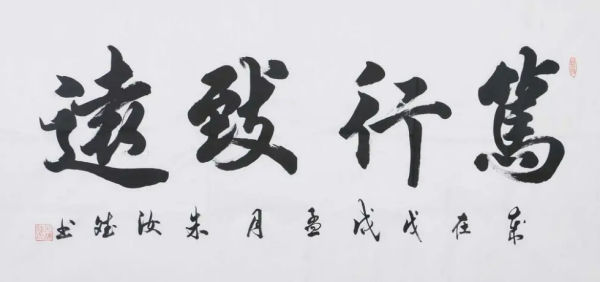 篤行致遠
歲在戊戌孟月朱汝书